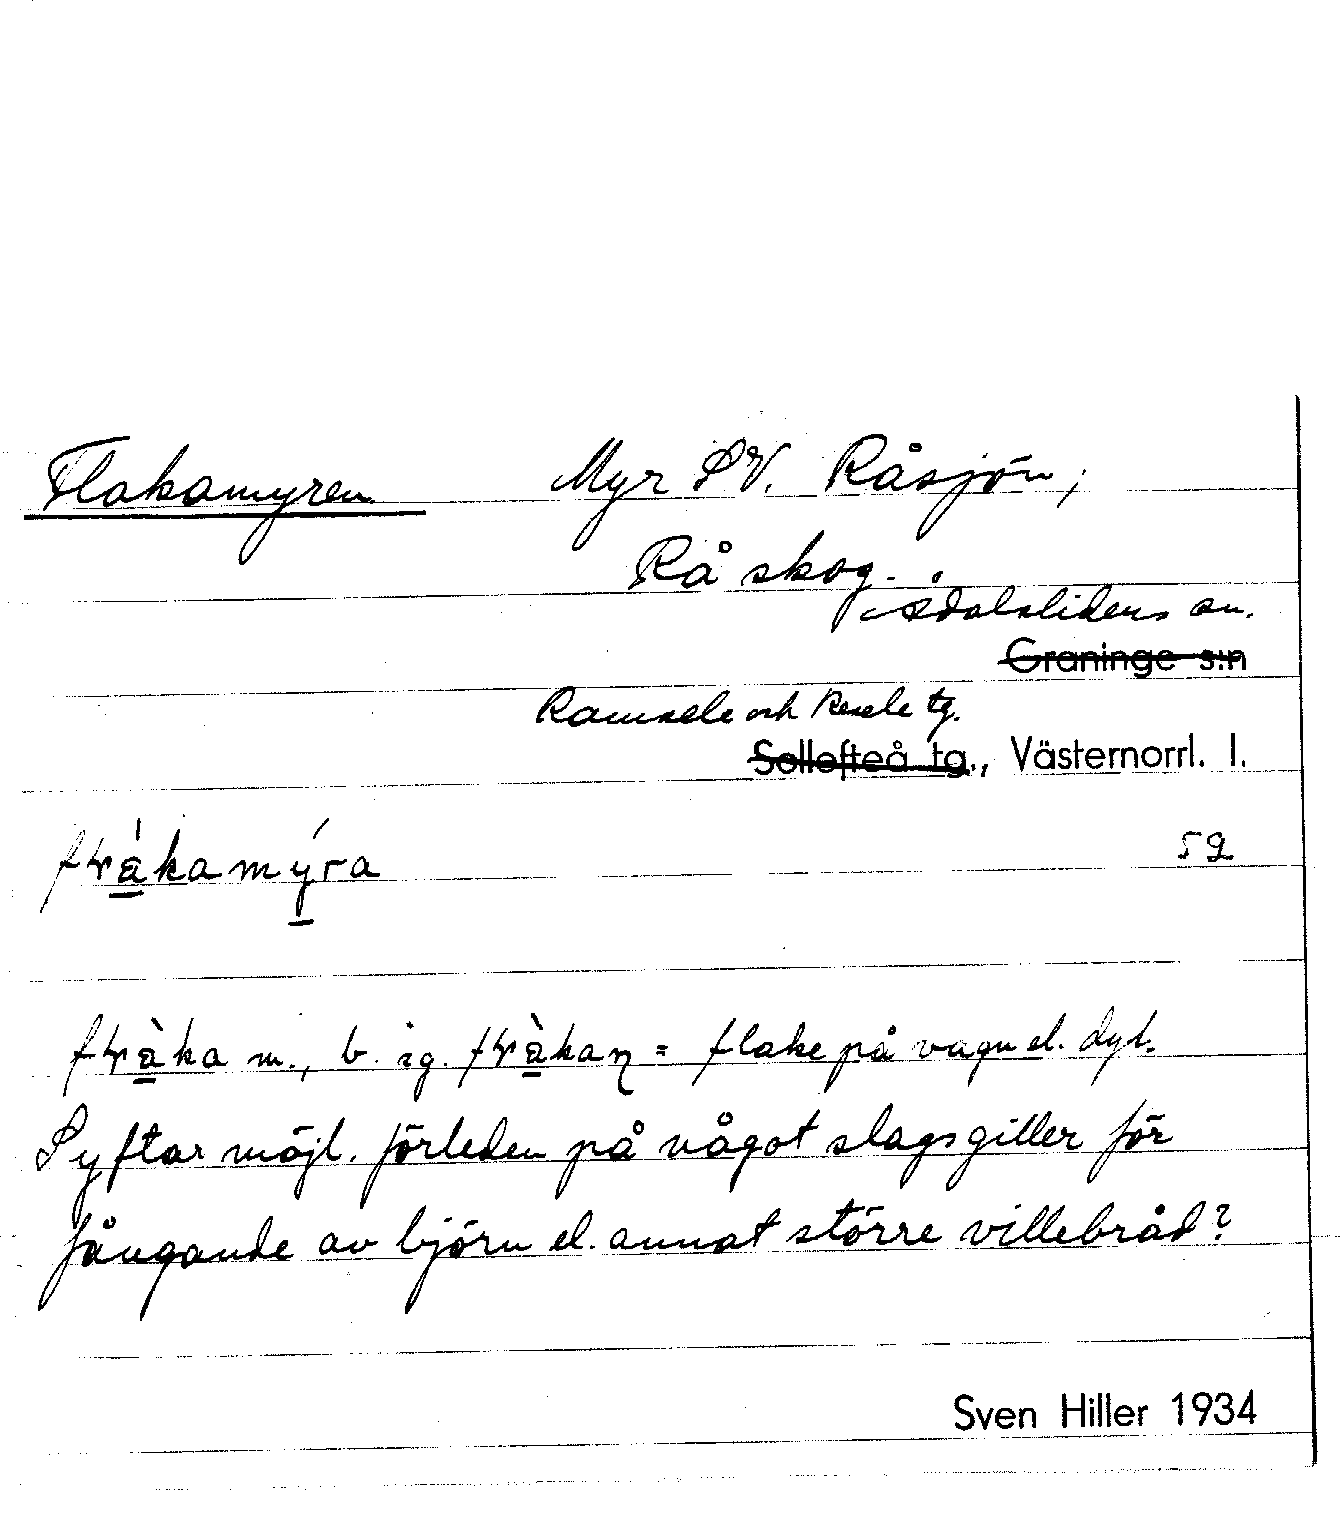 Flakamyren Myr SV. Råsjön;
Rå skog.
Ådalslidens sn.
Graninge s:n
Ramsele och Resele tg.
Sollefteå tg., Västernorrl. l.
52
m., b. sg. = flake på vagn el. dyl.
Syftar möjl. förleden på något slagsgiller för
fångande av björn el. annat större villebråd?
Sven Hiller 1934